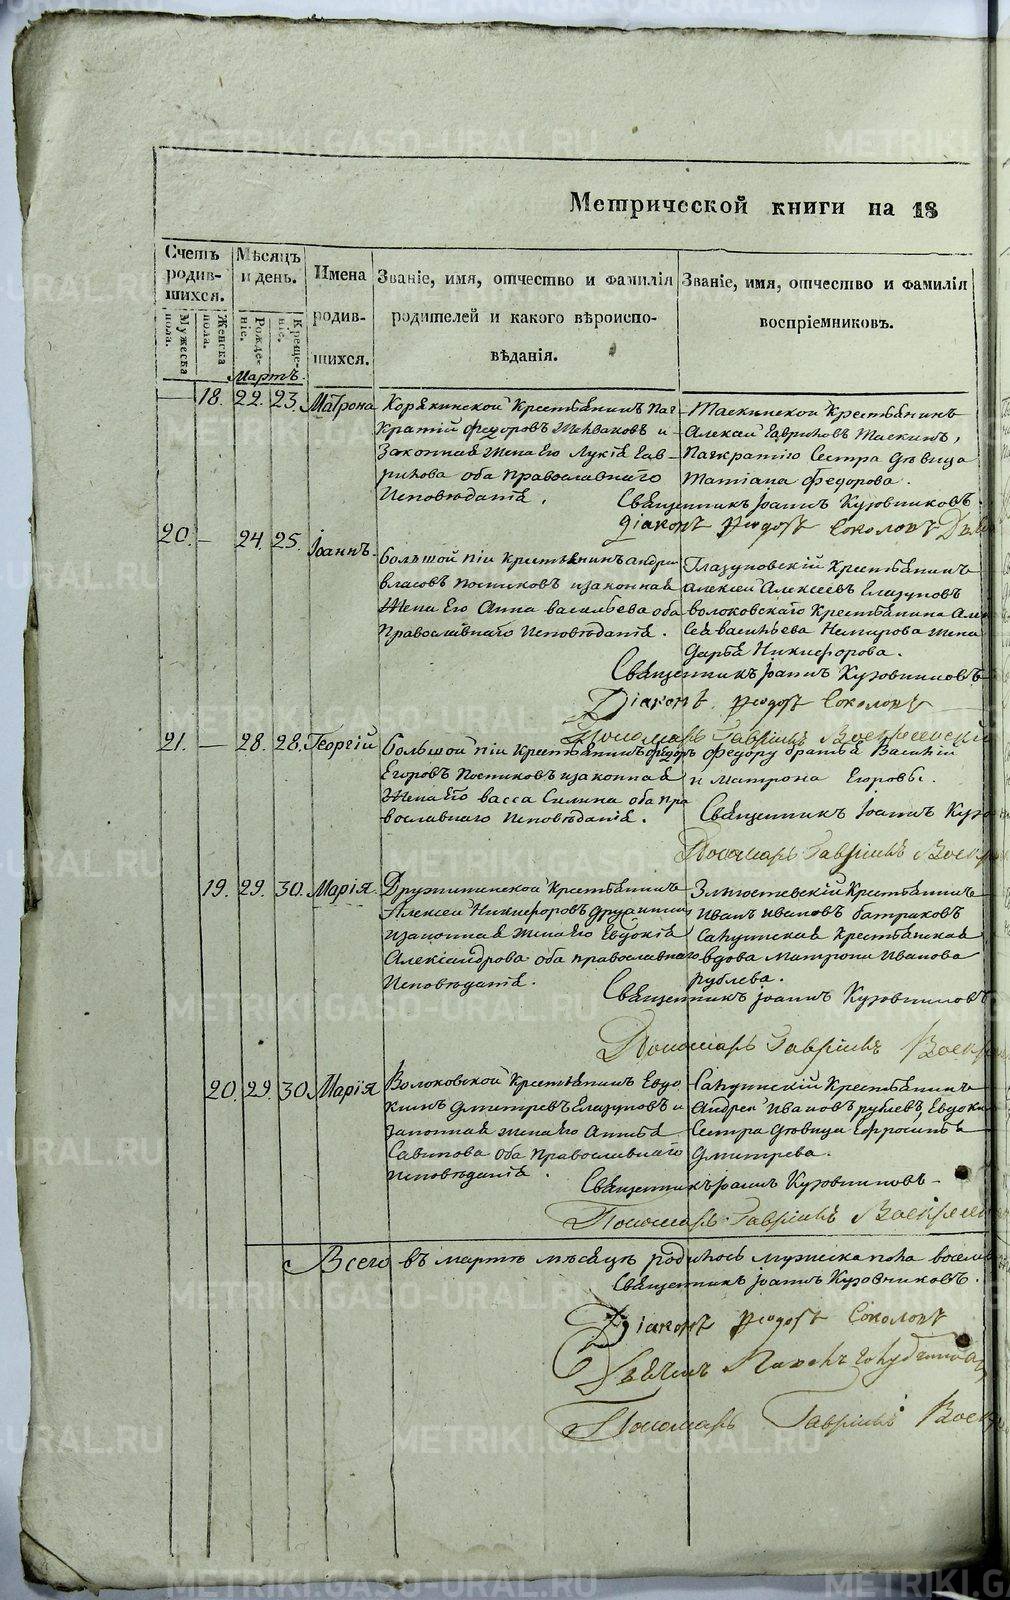 Метрической книги на 18
Счетъ родив- шихся.
Мужеска пола.
Женска пола.
Мѣсяцъ и день.
Рожде- ніе.
Креще- ніе.
Имена родив- шихся.
Званіе, имя, отчество и фамилія
родителей и какого вѣроиспо-
вѣданія.
Званіе, имя, отчество и фамилія
воспріемниковъ.
Мартъ.
18. 22. 23. Матрона
Корякинской Крестьянинъ Пан-
кратій Федоровъ и
законная жена его Лукія Гав-
рилова оба православнаго
исповѣданія.
Таскинской Крестьянинъ
Алексѣй Гавриловъ Таскинъ,
Панкратію сестра дѣвица
Татіана Федорова.
Священникъ Іоаннъ Кузовниковъ.
Діаконъ Ѳеодотъ Соколовъ
20. 24. 25. Іоаннъ.
большой ніи Крестьянинъ Андрей
Власовъ Посниковъ и законная
жена его Анна Васильева оба
православнаго исповѣданія.
Глазуновскій Крестьянинъ
Алексѣй Алексѣевъ Глазуновъ
волоковскаго Крестьянина Алек
сѣя Васильева жена
Дарья Никифорова.
Священникъ Іоаннъ Кузовниковъ
Діаконъ Ѳеодотъ Соколовъ
Пономарь Гавріилъ Воскресенскій
21. 28. 28. Георгій
большой ніи Крестьянинъ Федоръ
Егоровъ Посниковъ и законная
жена его Васса Силина оба пра
вославнаго исповѣданія.
Федору братья Василій
и Матрона Егоровы.
Священникъ Іоаннъ Кузо
Пономарь Гавріилъ Воскр
19. 29. 30. Марія
Дружининской Крестьянинъ
Алексѣй Никифоровъ Дружининъ
и законная жена его Евдокія
Александрова оба православнаго
исповѣданія.
Крестьянинъ
Иванъ Ивановъ Батраковъ
Крестьянская
вдова Матрона Иванова
Рублева.
Священникъ Іоаннъ Кузовниковъ
Пономарь Гавріилъ Воскре
20. 29. 30. Марія
Волоковской Крестьянинъ Евдо
кимъ Дмитревъ Глазуновъ и
законная жена его
Савинова оба православнаго
исповѣданія.
Крестьянинъ
Андрей Ивановъ Рублевъ, Евдоки
сестра дѣвица Ефросинья
Дмитрева.
Священникъ Іоаннъ Кузовниковъ
Пономарь Гавріилъ Воскресен
Всего въ мартѣ мѣсяцѣ родилось мужска пола восемь
Священникъ Іоаннъ Кузовниковъ.
Діаконъ Ѳеодотъ Соколовъ
Дьячекъ
Пономарь Гавріилъ Воскр
METRIKI.GASO-URAL.RU